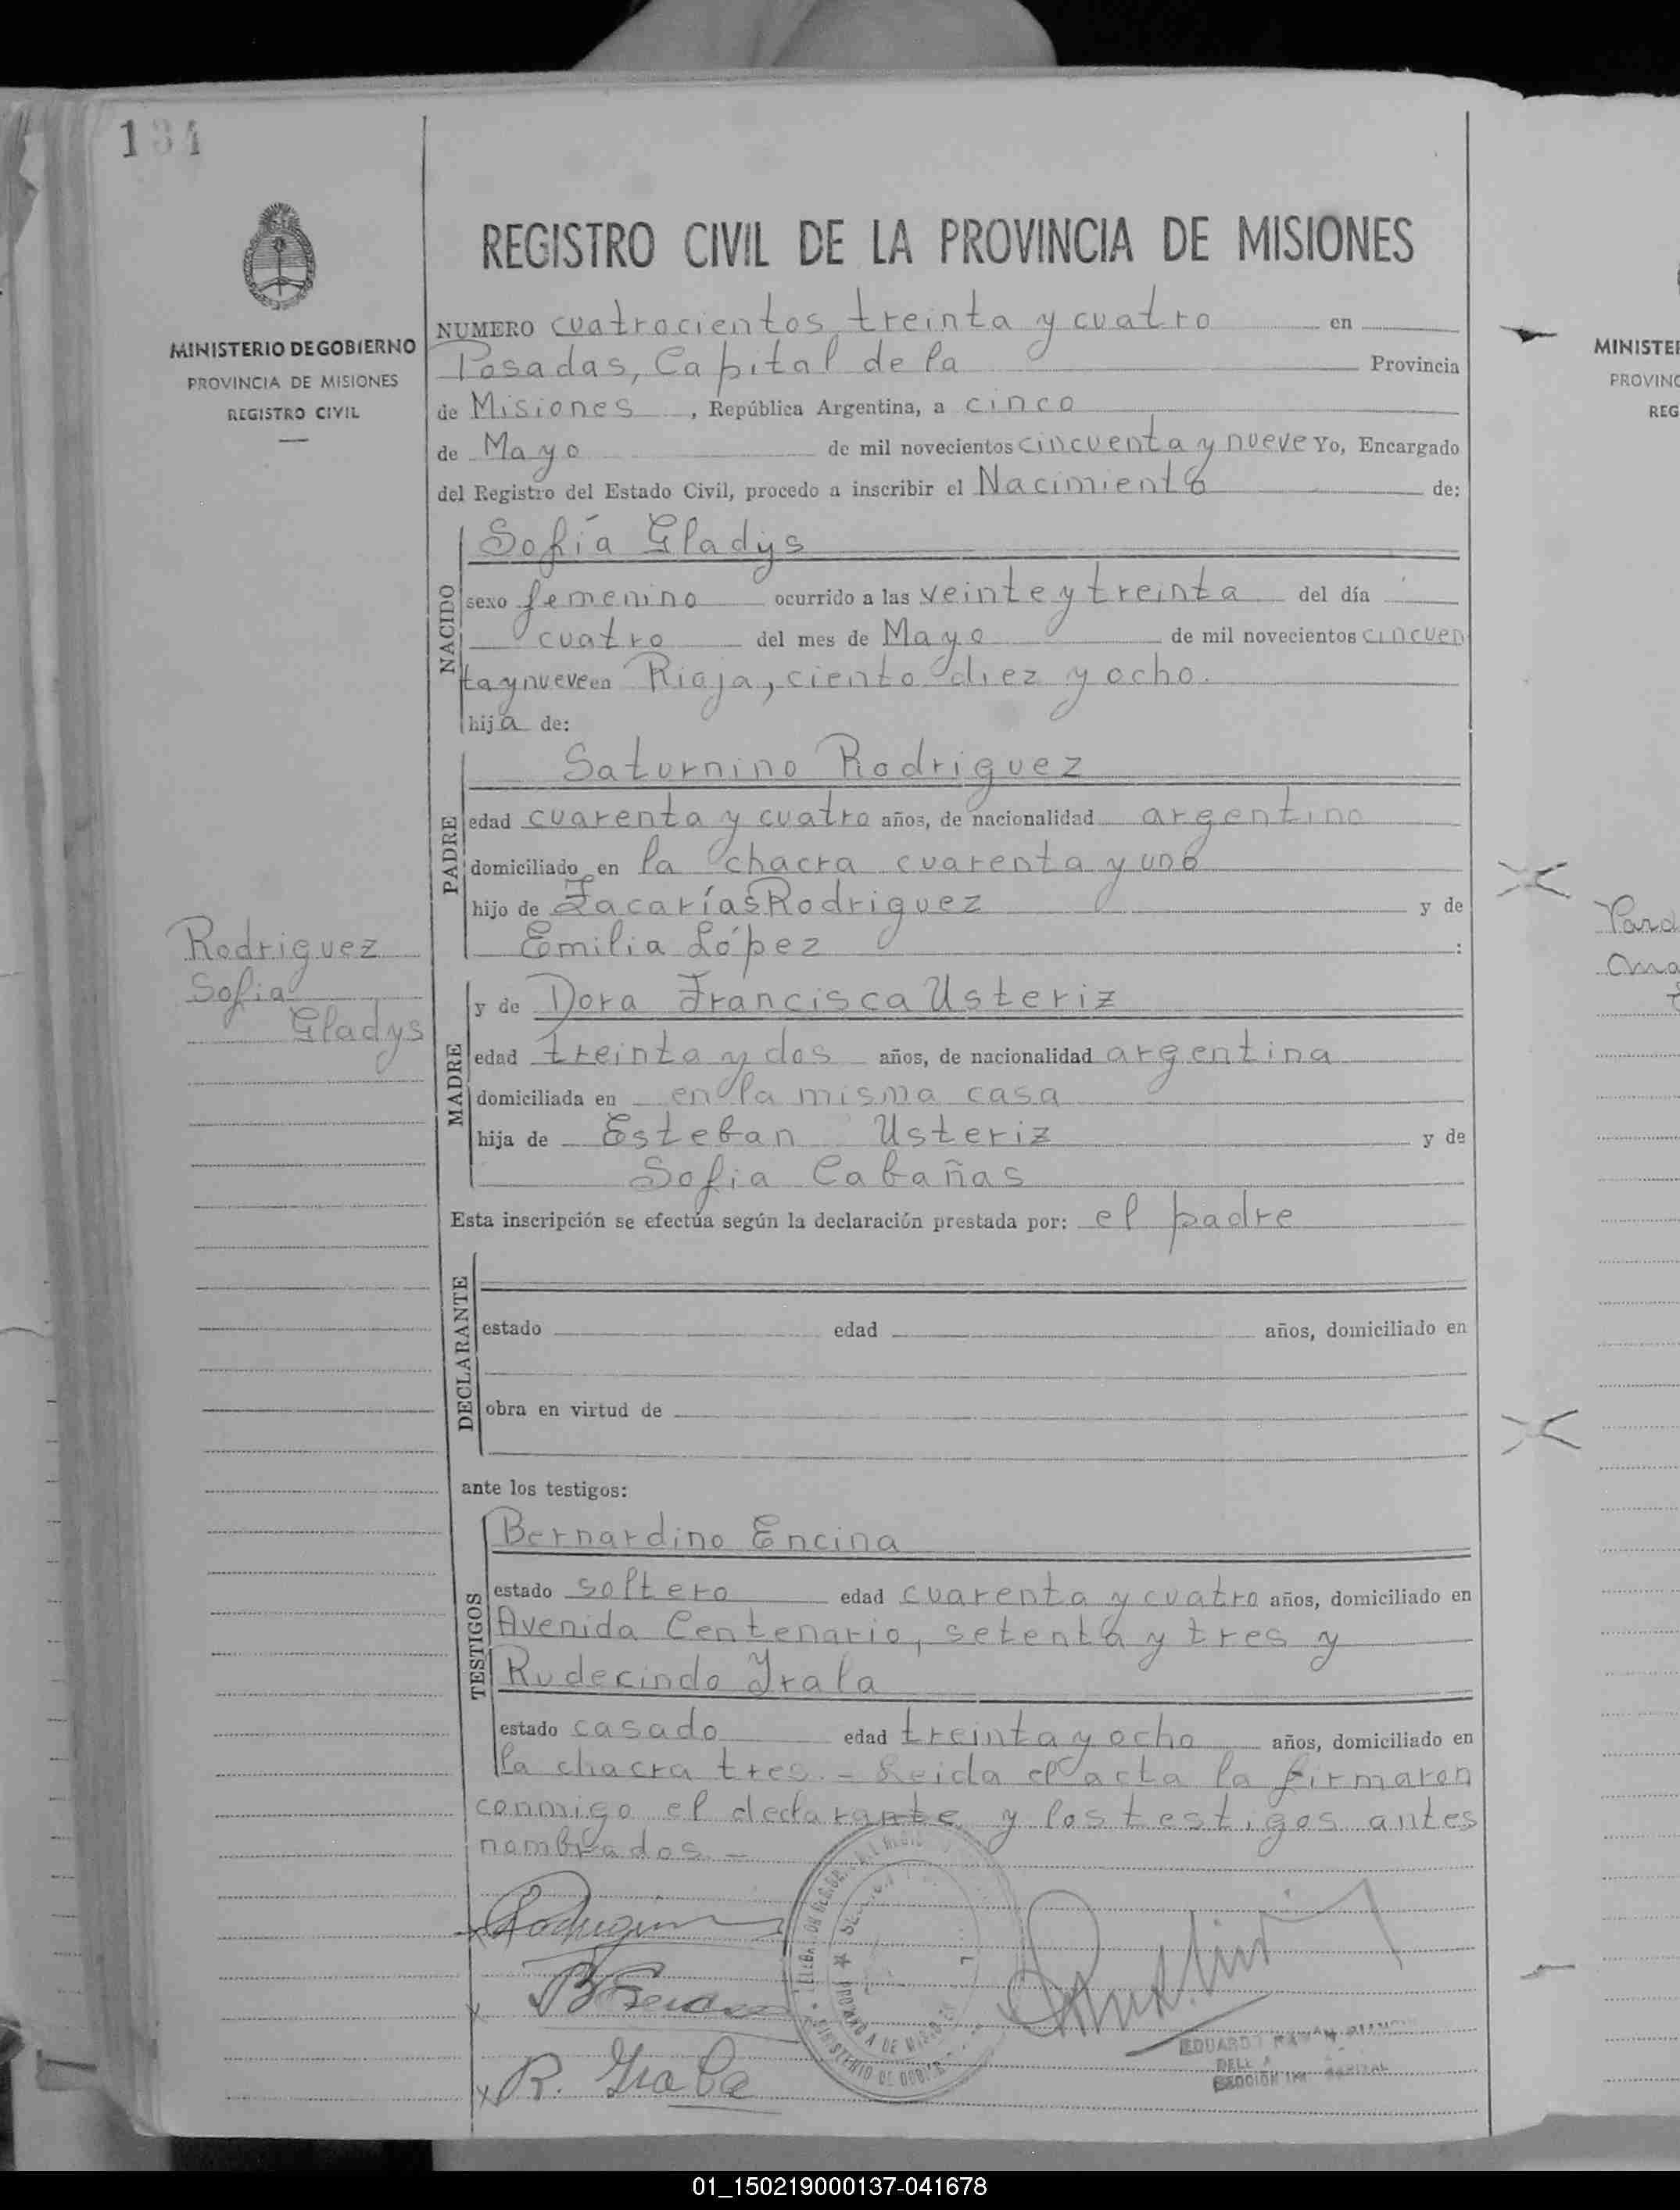 134
MINISTERIO DE GOBIERNO
PROVINCIA DE MISIONES
REGISTRO CIVIL
REGISTRO CIVIL DE LA PROVINCIA DE MISIONES
NUMERO cuatrocientos treinta y cuatro en
Posadas, Capital de la Provincia
de Misiones, República Argentina, a cinco
de Mayo de mil novecientos cincuenta y nueve Yo, Encargado
del Registro del Estado Civil, procedo a inscribir el Nacimiento de:
NACIDO
Sofía Gladys
sexo femenino ocurrido a las veinte y treinta del día
cuatro del mes de Mayo de mil novecientos cincuen
ta y nueve en Rioja, ciento diez y ocho.
hija de:
PADRE
Saturnino Rodriguez
edad cuarenta y cuatro años, de nacionalidad argentino
domiciliado en la chacra cuarenta y uno
hijo de Zacarías Rodriguez y de
Emilia López :
Rodriguez
Sofia
Gladys
MADRE
y de Dora Francisca Usteriz
edad treinta y dos años, de nacionalidad argentina
domiciliada en en la misma casa
hija de Esteban Usteriz y de
Sofia Cabañas
Esta inscripción se efectúa según la declaración prestada por: el padre
DECLARANTE
estado edad años, domiciliado en
obra en virtud de
ante los testigos:
TESTIGOS
Bernardino Encina
estado soltero edad cuarenta y cuatro años, domiciliado en
Avenida Centenario, setenta y tres y
Rudecindo Irala
estado casado edad treinta y ocho años, domiciliado en
la chacra tres. - Leida el acta la firmaron
conmigo el declarante y los testigos antes
nombrados -
R. Irala
MINISTE
PROVINC
REG
01_150219000137-041678